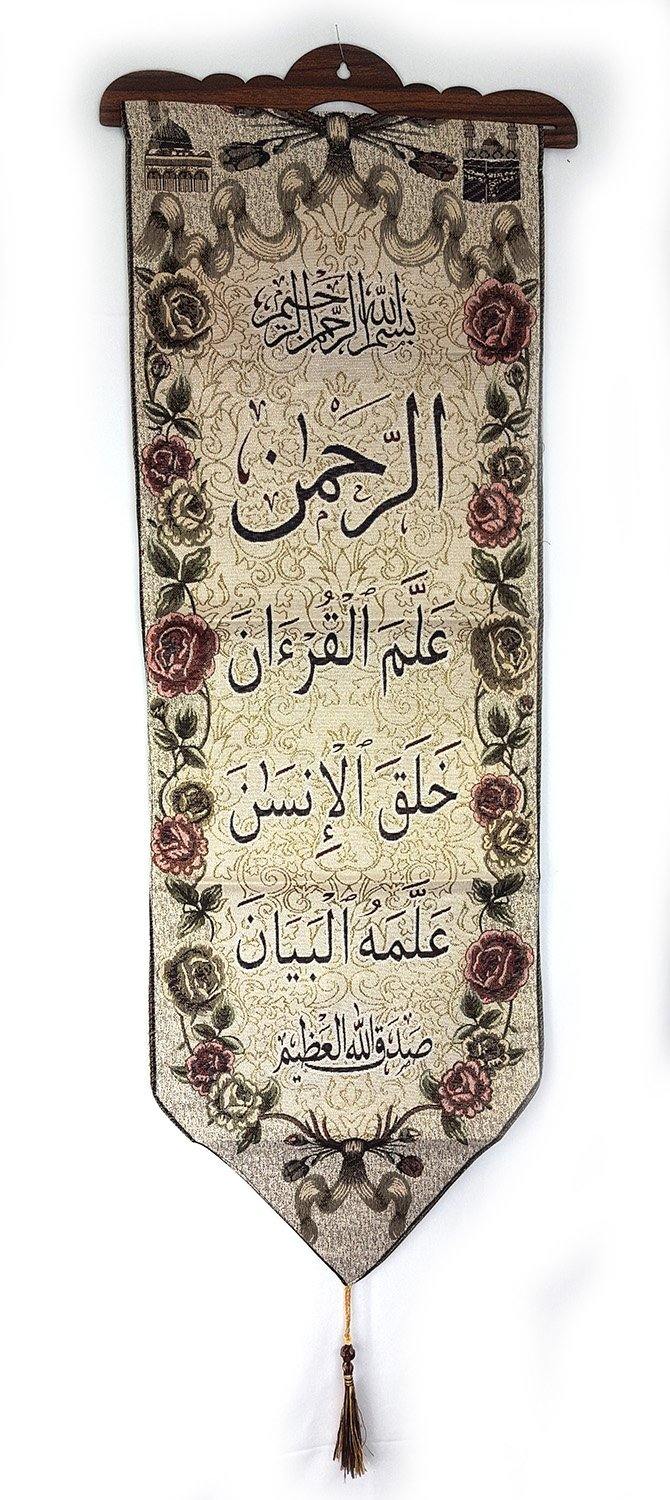 بسم الله الرحمن الرحيم
الرّحمٰن
عَلَّمَ ٱلْقُرْءَانَ
خَلَقَ ٱلْإِنسَٰنَ
عَلَّمَهُ ٱلْبَيَانَ
صَدَقَ اللّٰه العَظيم